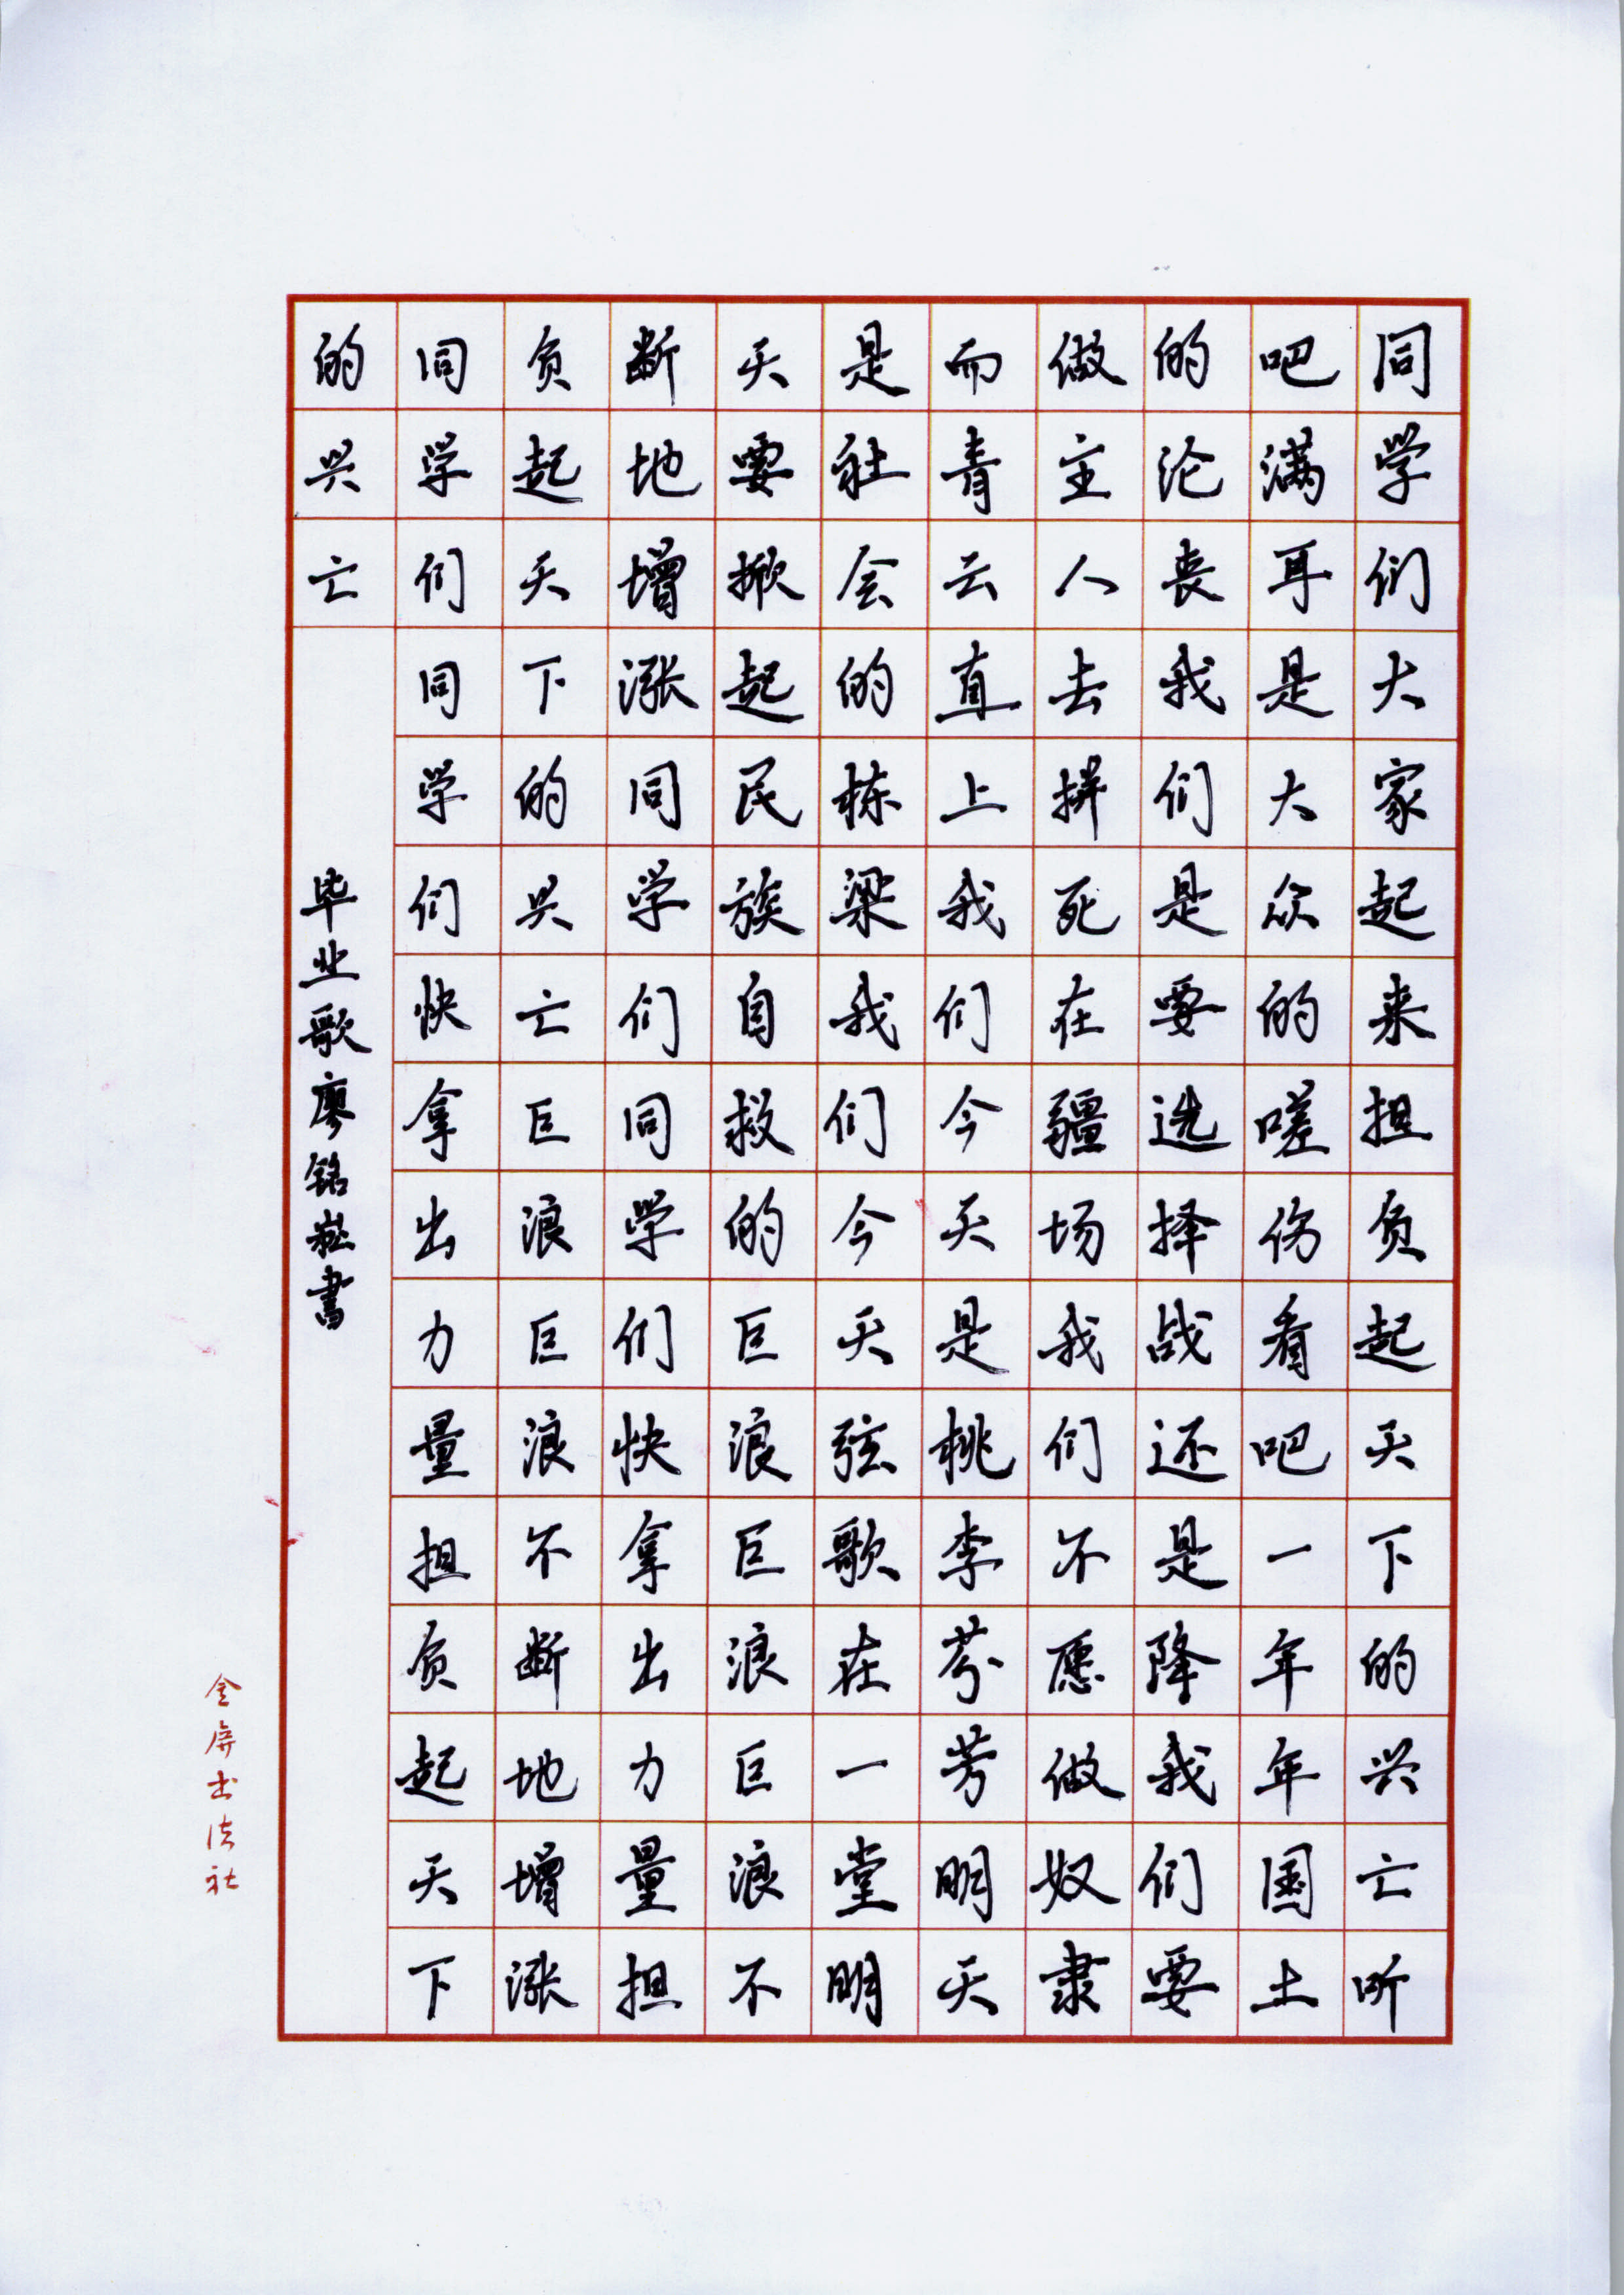 同学们大家起来担负起天下的兴亡听
吧满耳是大众的嗟伤看吧一年年国土
的沦丧我们是要选择战还是降我们要
做主人去拼死在疆场我们不愿做奴隶
而青云直上我们今天是桃李芬芳明天
是社会的栋梁我们今天弦歌在一堂明
天要掀起民族自救的巨浪巨浪巨浪不
断地增涨同学们同学们快拿出力量担
负起天下的兴亡巨浪巨浪不断地增涨
同学们同学们快拿出力量担负起天下
的兴亡
毕业歌廖铭崧書
金屏书法社